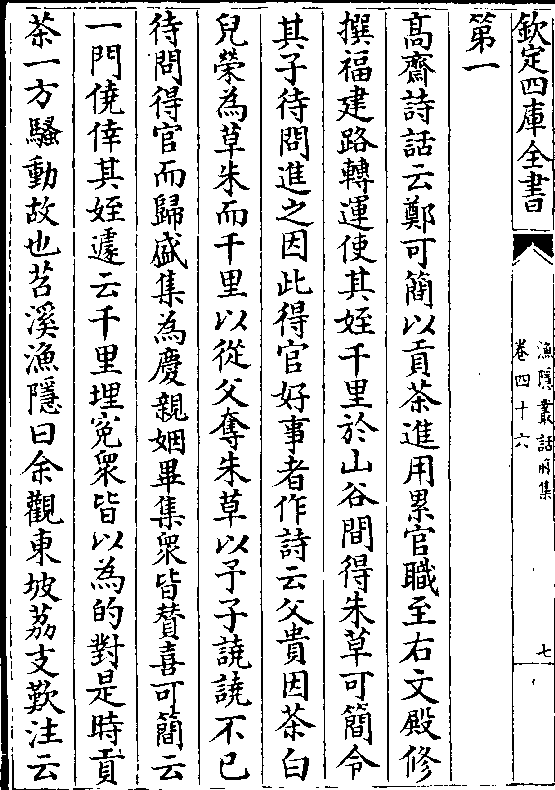 欽定四庫全書
漁隱叢話前集
卷四十六
七
第一
高齋詩話云鄭可簡以貢茶進用累官職至右文殿修
撰福建路轉運使其姪千里於山谷間得朱草可簡令
其子待問進之因此得官好事者作詩云父貴因茶白
兒榮為草朱而千里以從父奪朱草以予子譊譊不已
待問得官而歸盛集為慶親姻畢集衆皆賛喜可簡云
一門僥倖其姪遽云千里埋寃衆皆以為的對是時貢
茶一方騷動故也苕溪漁隱曰余觀東坡荔支歎注云